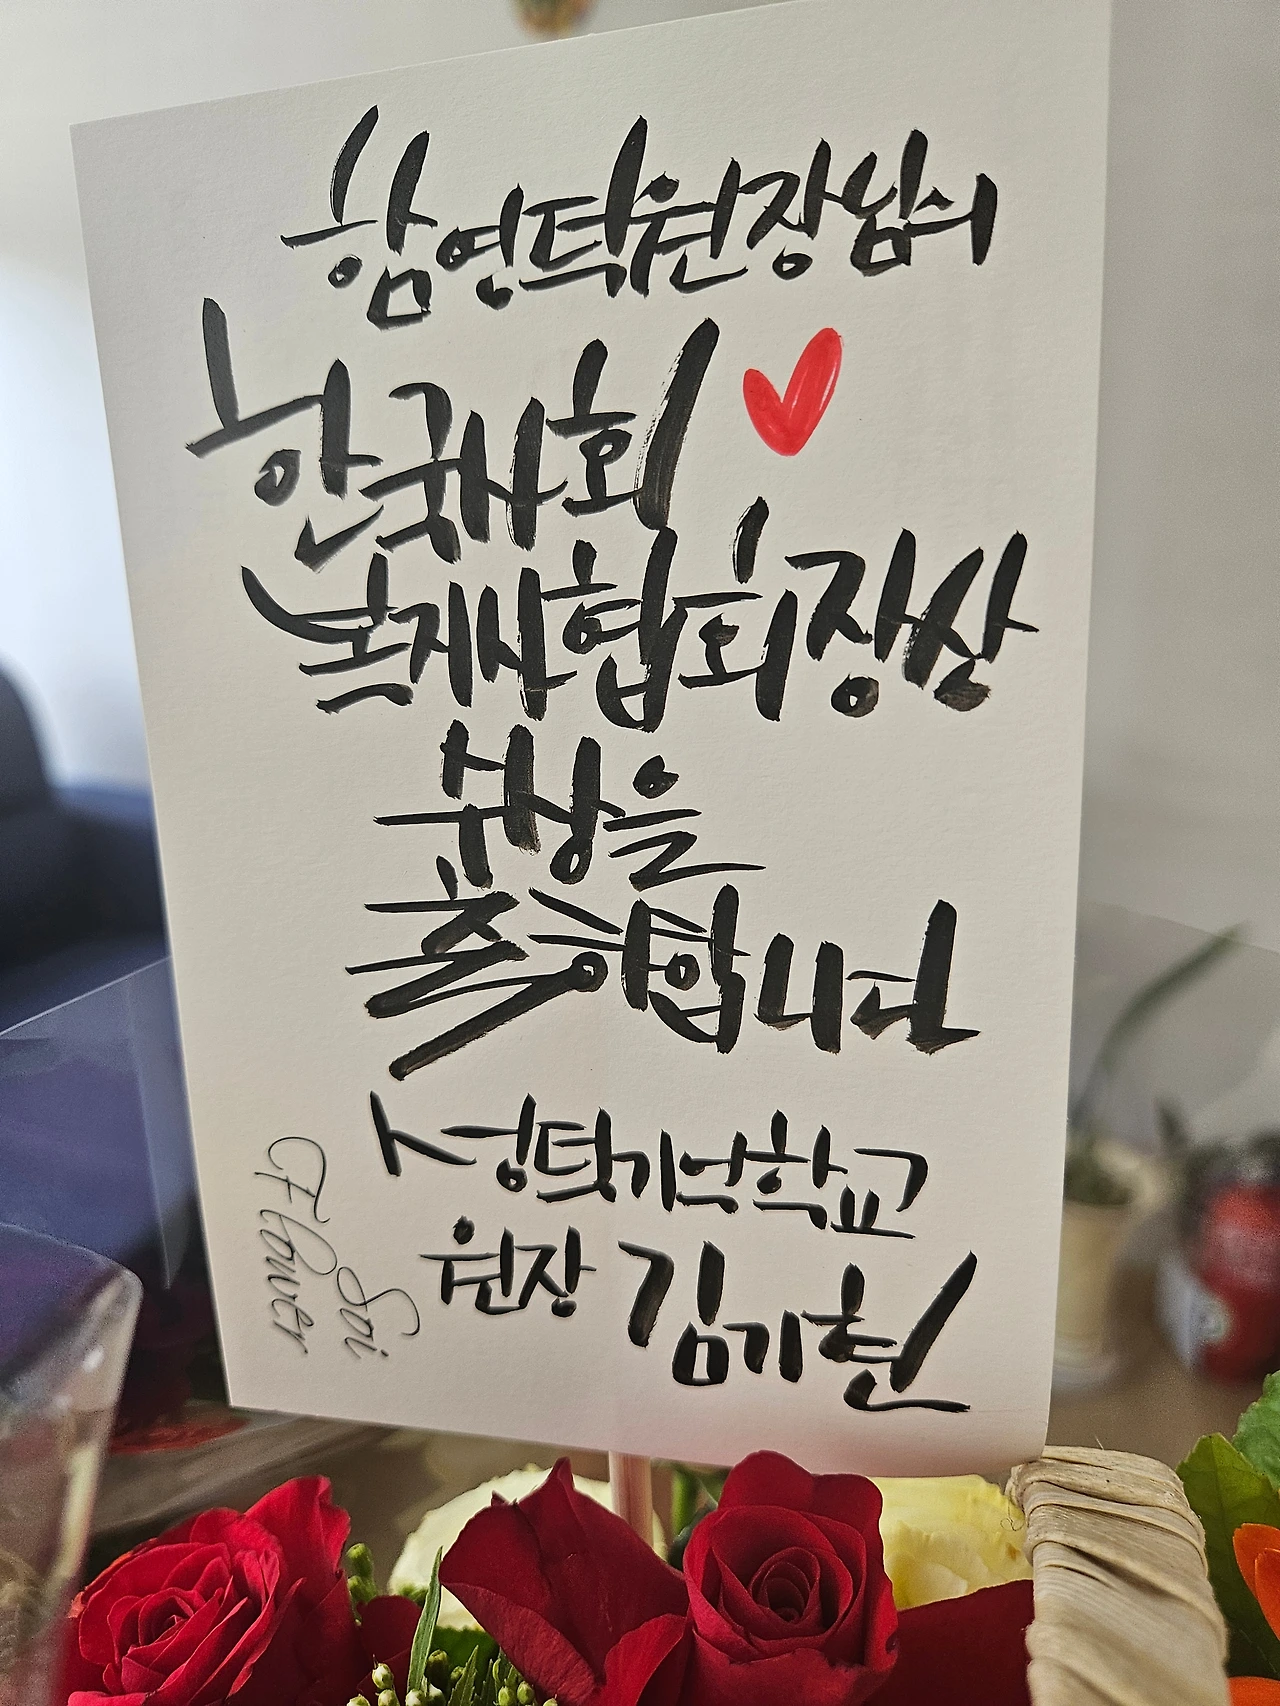 함영덕원장님의
한국사회
복지사협회장상
수상을
축하합니다
성덕기억학교
원장 김기현
Soi
Flower